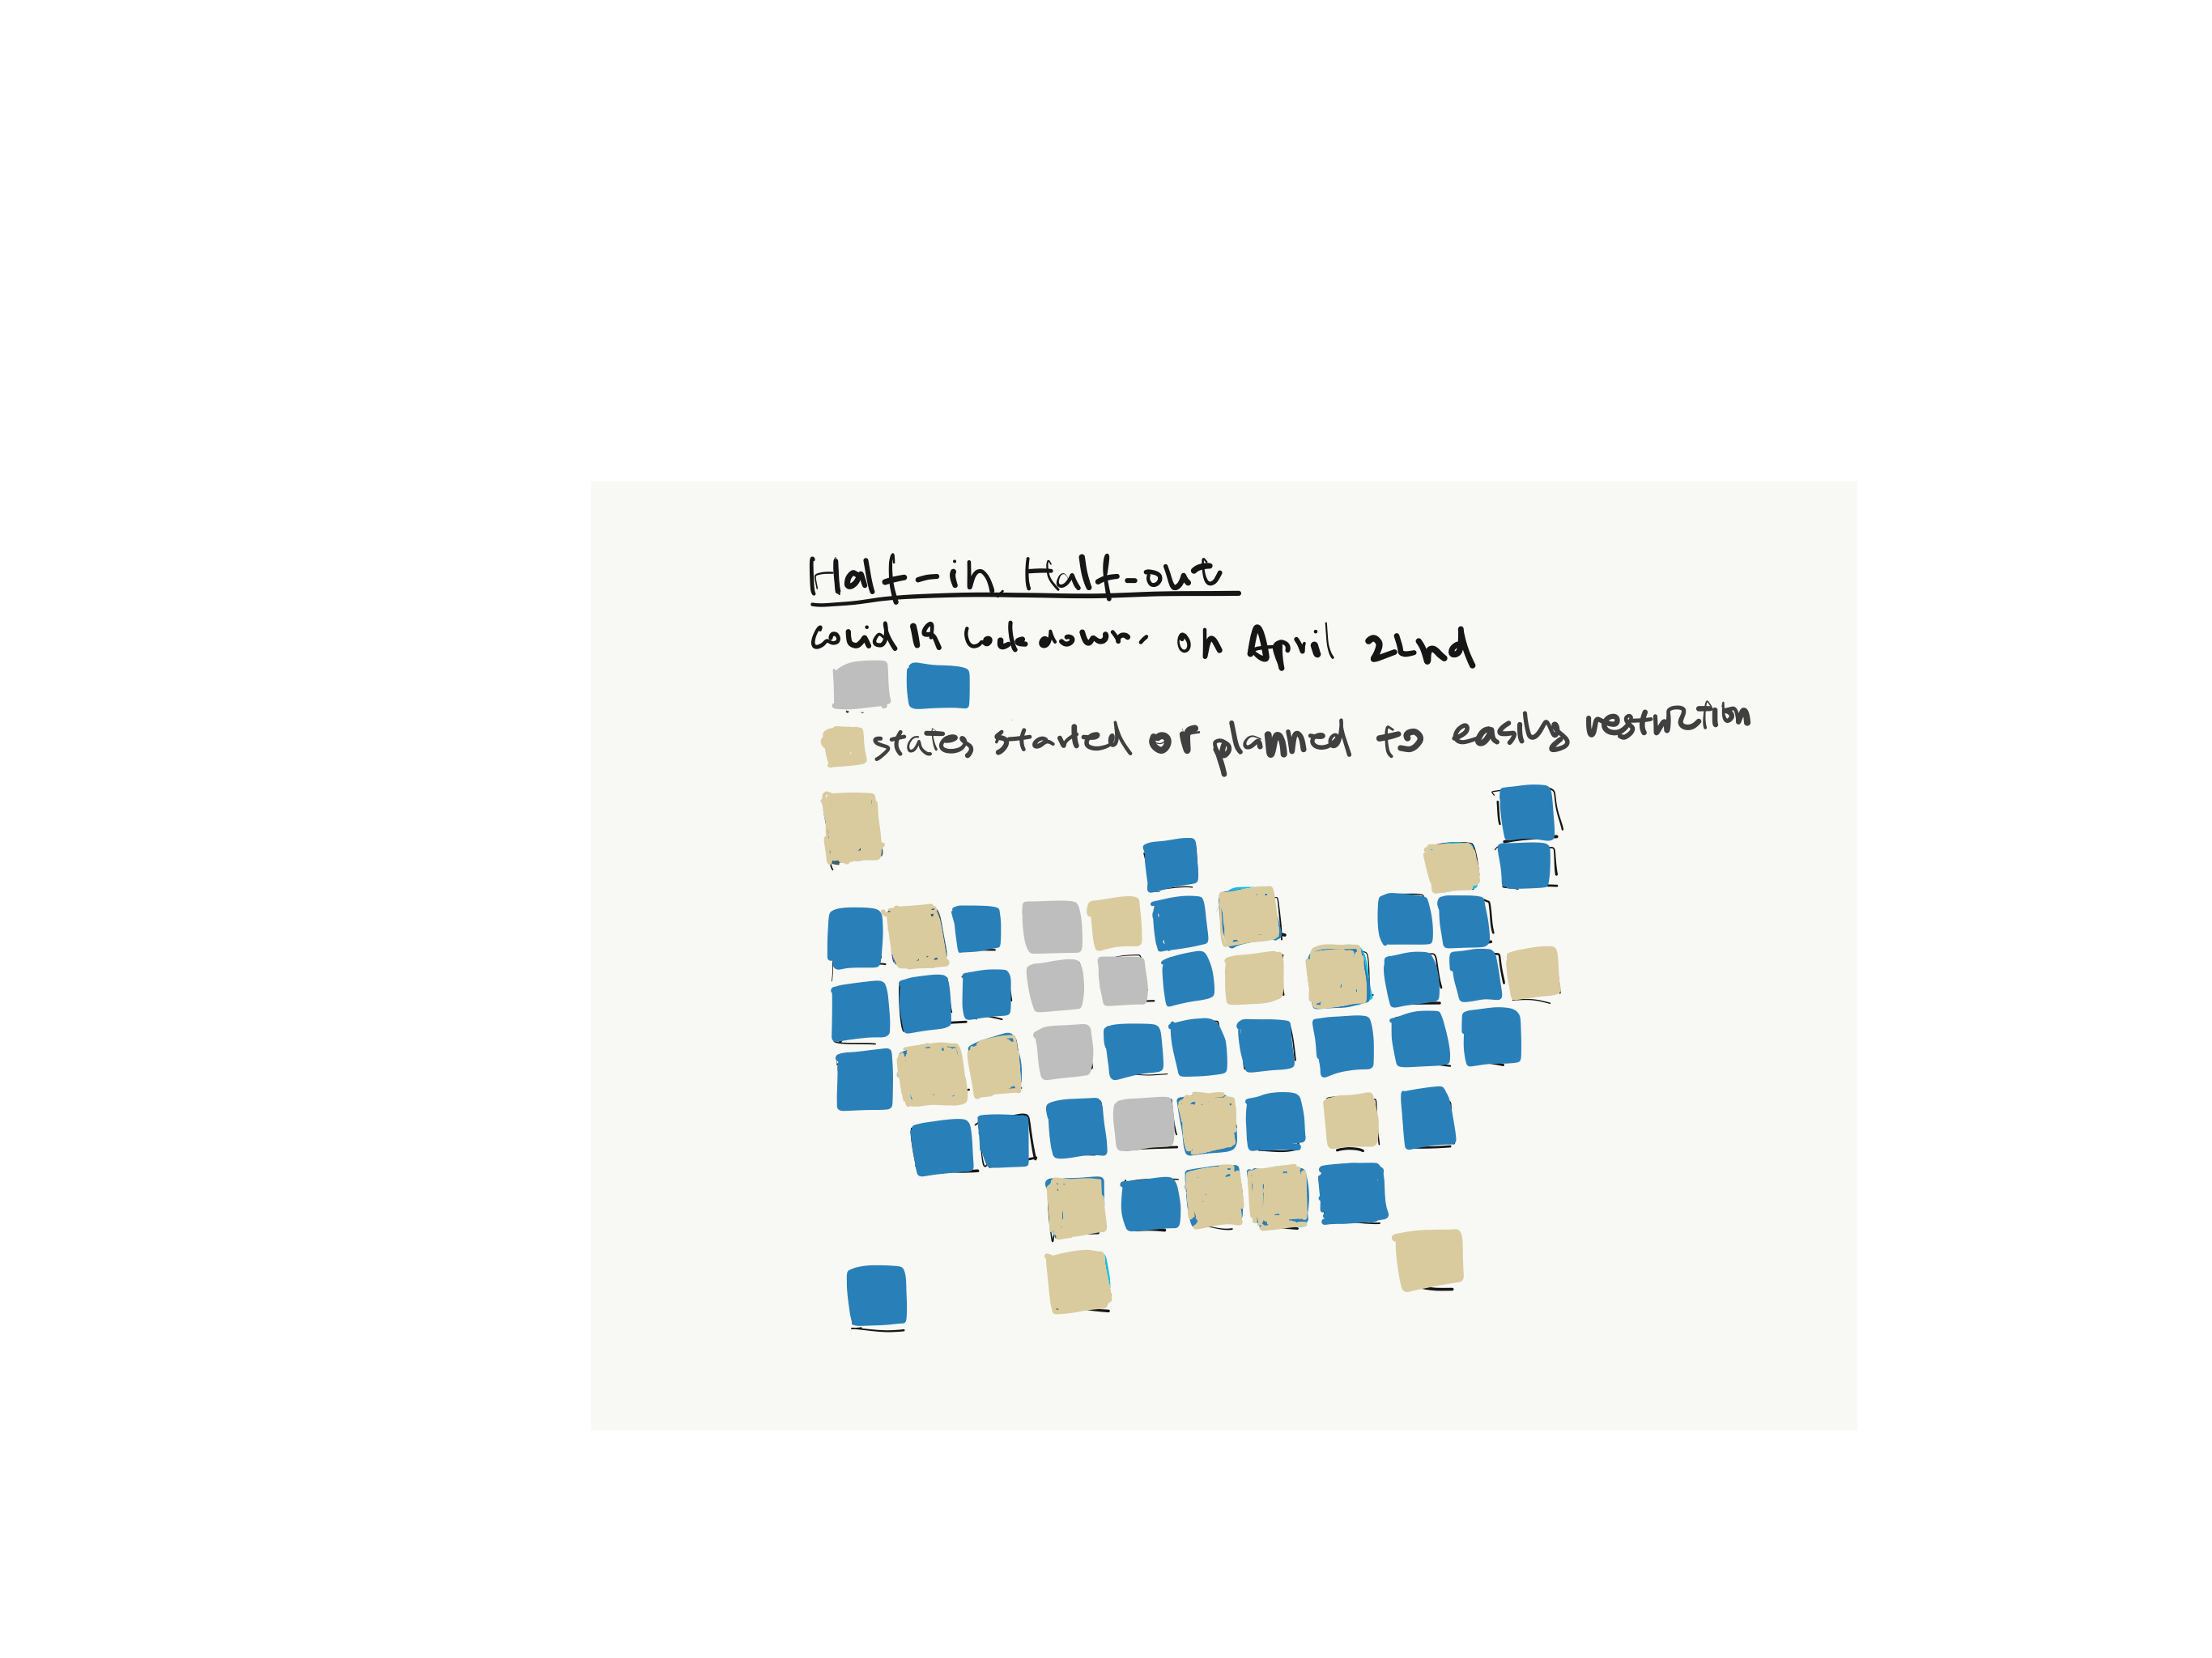 Half-in Half-out
covid 19 lockdown. on April 22nd
states started or planned to easing restriction